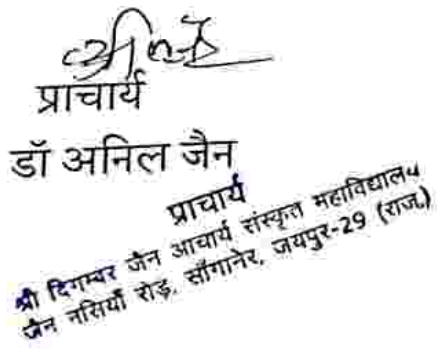 प्राचार्य
डॉ अनिल जैन
प्राचार्य
श्री दिगम्बर जैन आचार्य संस्कृत महाविद्यालय
जैन नसियाँ रोड़, साँगानेर, जयपुर-29 (राज.)